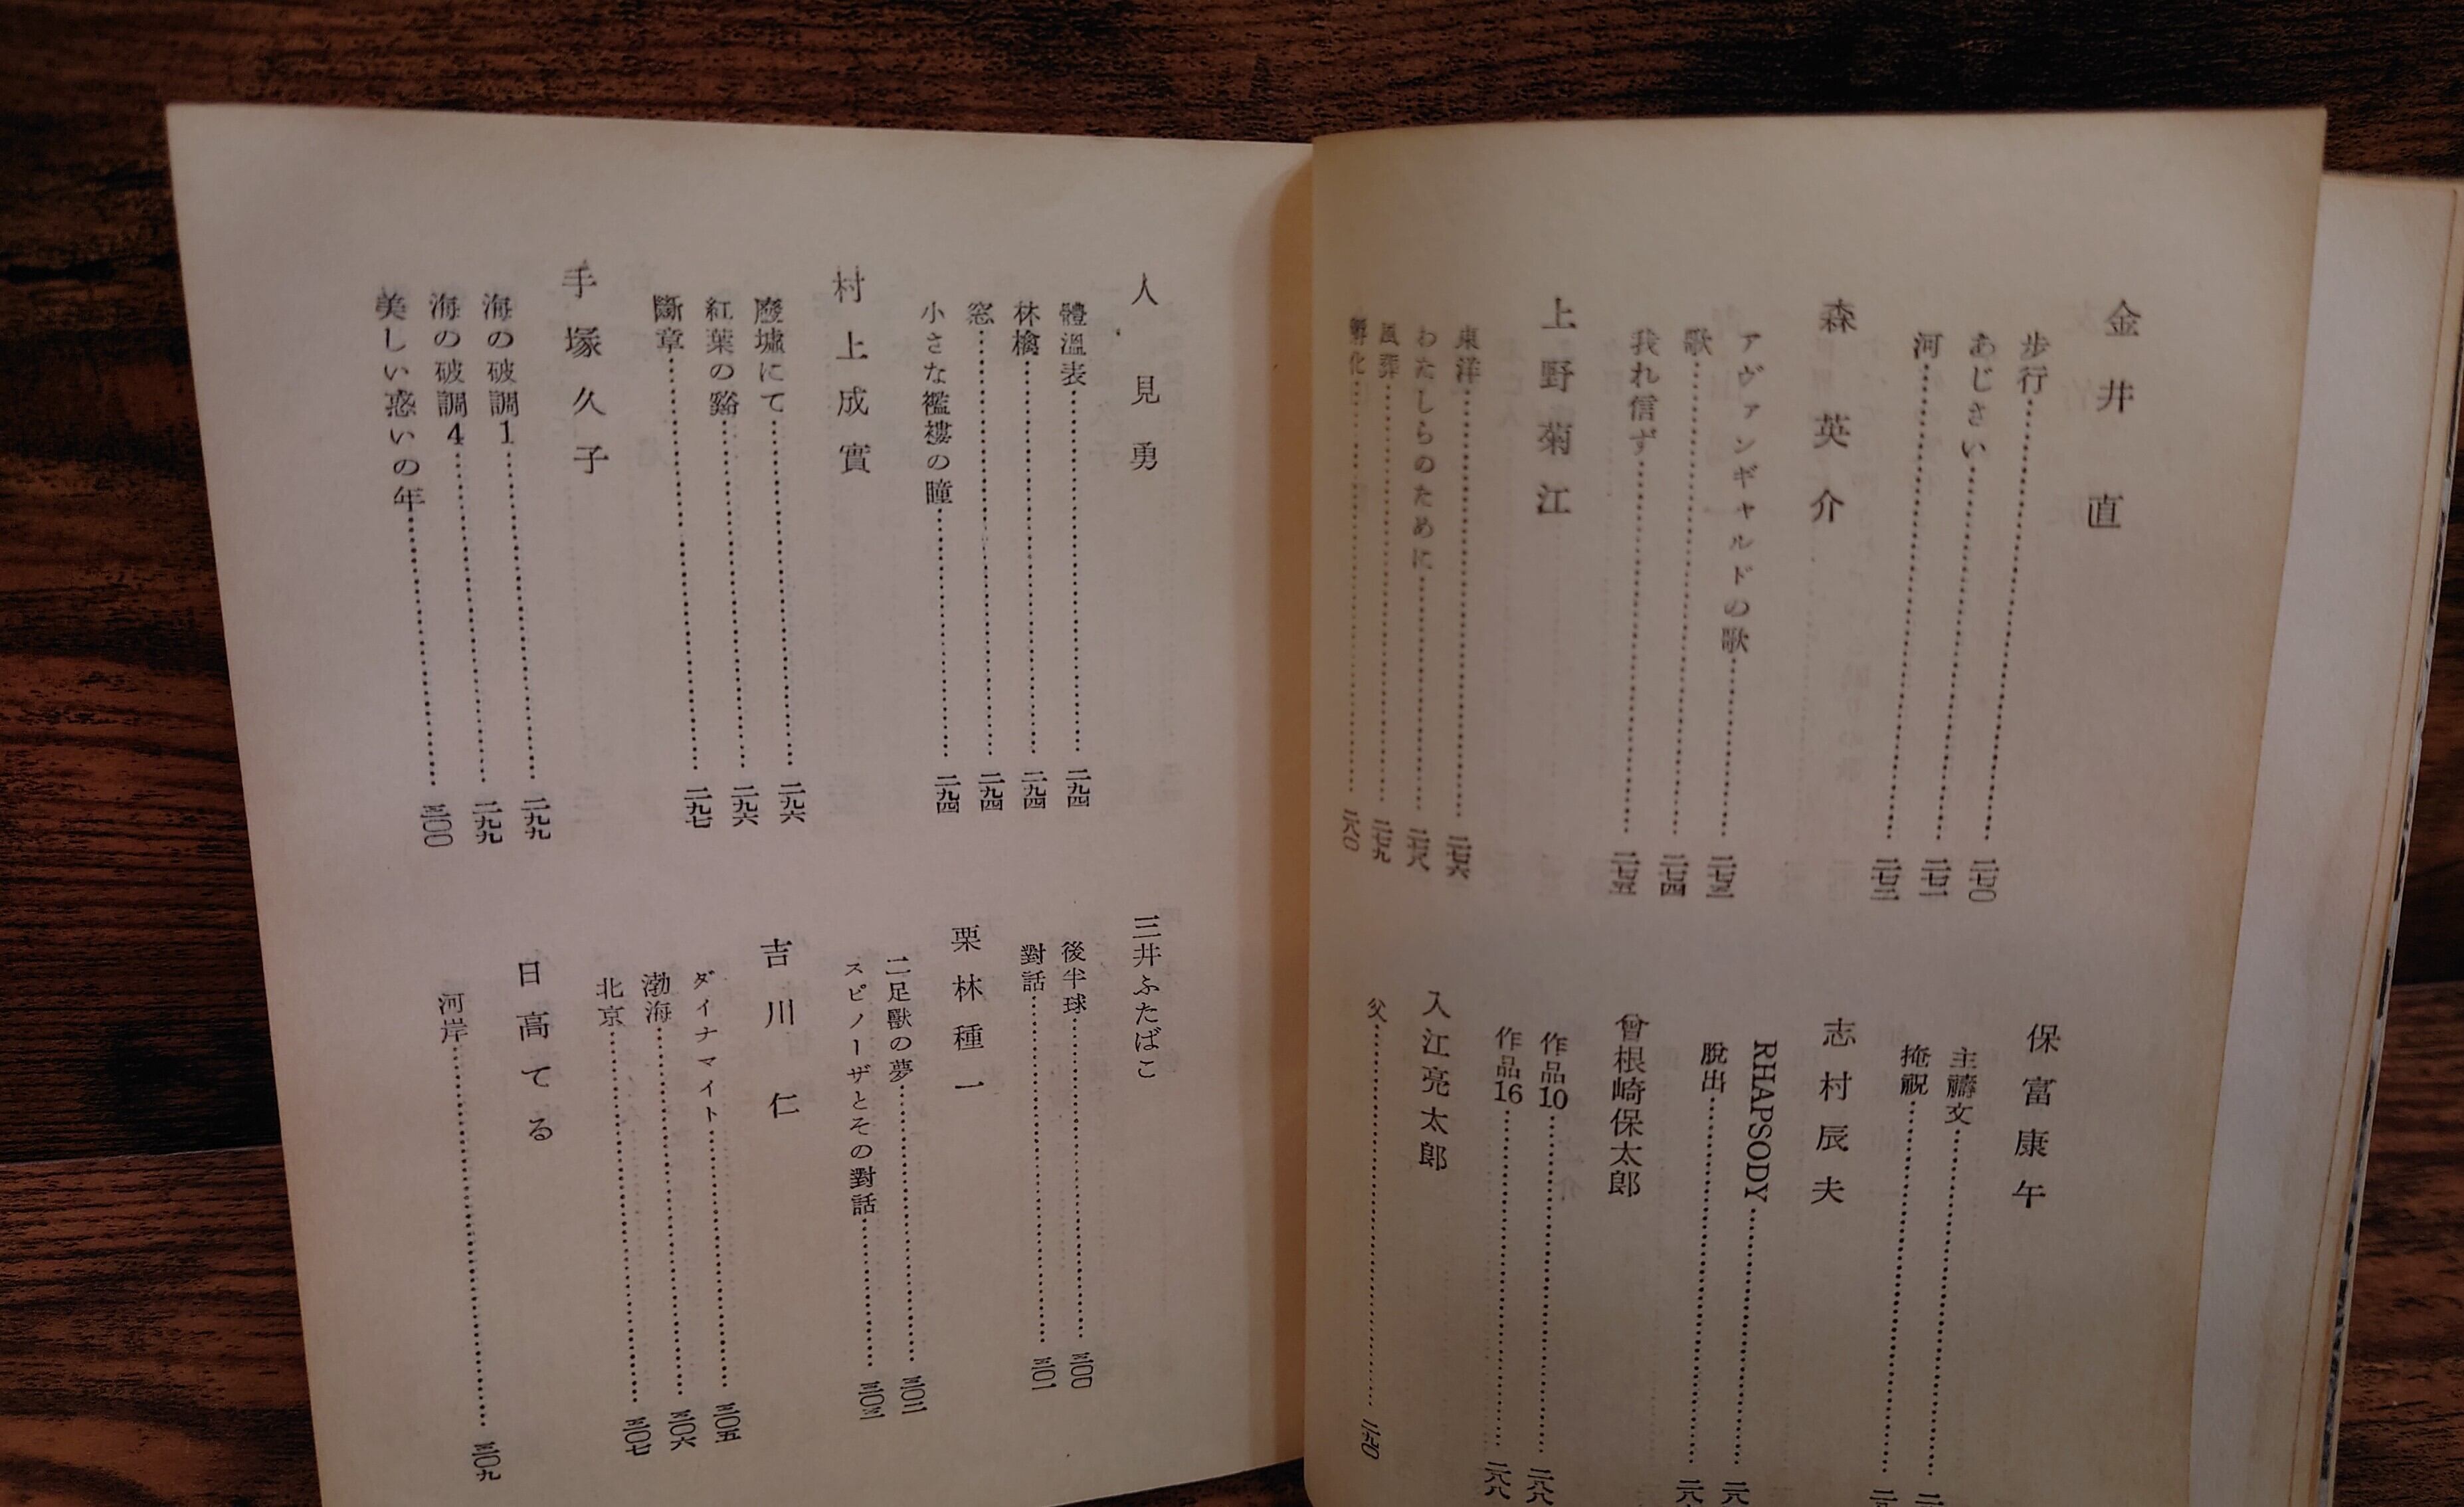 金井直
歩行……二七〇
あじさい……二七一
河……二七二
森英介
アヴァンギャルドの歌……二七三
歌……二七四
我れ信ず……二七五
上野菊江
東洋……二七六
わたしらのために……二七八
風葬……二七九
孵化……二八〇
保富康午
主禱文
掩覗
志村辰夫
RHAPSODY
脱出
曾根崎保太郎
作品10……二八八
作品16……二八八
入江亮太郎
父……二九〇
人見勇
體溫表……二九四
林檎……二九四
窓……二九四
小さな襤褸の瞳……二九四
村上成實
廢墟にて……二九六
紅葉の谿……二九六
斷章……二九七
手塚久子
海の破調1……二九九
海の破調4……二九九
美しい惑いの年……三〇〇
三井ふたばこ
後半球……三〇〇
對話……三〇一
栗林種一
二足獸の夢……三〇二
スピノーザとその對話……三〇三
吉川仁
ダイナマイト……三〇五
渤海……三〇六
北京……三〇七
日高てる
河岸……三〇九